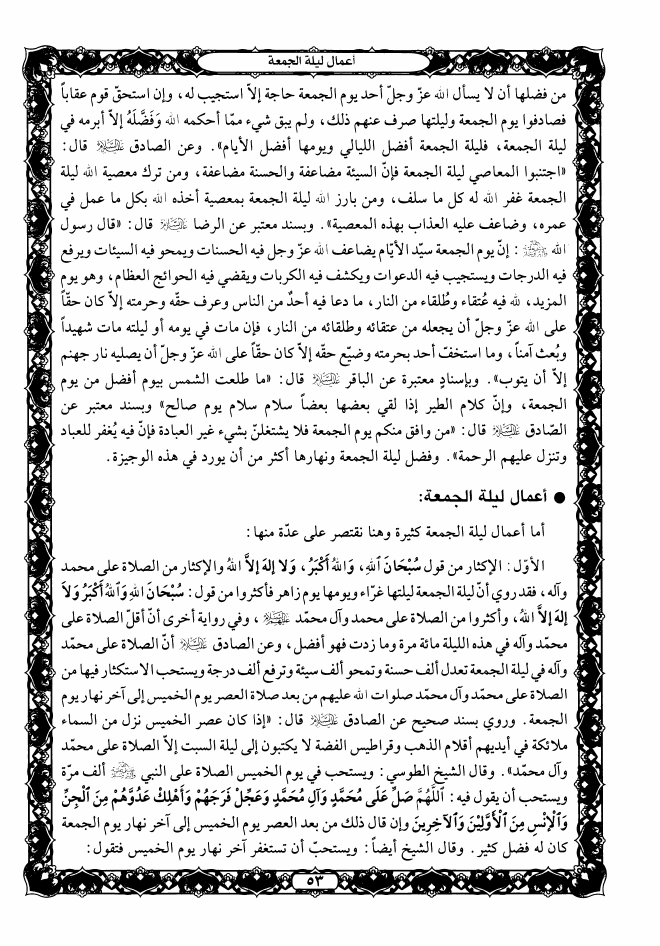 أعمال ليلة الجمعة
من فضلها أن لا يسأل الله عزّ وجلّ أحد يوم الجمعة حاجة إلاّ استجيب له، وإن استحقّ قوم عقاباً
فصادفوا يوم الجمعة وليلتها صرف عنهم ذلك، ولم يبق شيء ممّا أحكمه الله وَفَضَّلَهُ إلاّ أبرمه في
ليلة الجمعة، فليلة الجمعة أفضل الليالي ويومها أفضل الأيام». وعن الصادق عليه السلام قال:
«اجتنبوا المعاصي ليلة الجمعة فإنّ السيئة مضاعفة والحسنة مضاعفة، ومن ترك معصية الله ليلة
الجمعة غفر الله له كل ما سلف، ومن بارز الله ليلة الجمعة بمعصية أخذه الله بكل ما عمل في
عمره، وضاعف عليه العذاب بهذه المعصية». وبسند معتبر عن الرضا عليه السلام قال: «قال رسول
الله ﷺ : إنّ يوم الجمعة سيّد الأيّام يضاعف الله عزّ وجل فيه الحسنات ويمحو فيه السيئات ويرفع
فيه الدرجات ويستجيب فيه الدعوات ويكشف فيه الكربات ويقضي فيه الحوائج العظام، وهو يوم
المزيد، لله فيه عُتقاء وطُلقاء من النار، ما دعا فيه أحدٌ من الناس وعرف حقّه وحرمته إلاّ كان حقّاً
على الله عزّ وجلّ أن يجعله من عتقائه وطلقائه من النار، فإن مات في يومه أو ليلته مات شهيداً
وبُعث آمناً، وما استخفّ أحد بحرمته وضيّع حقّه إلاّ كان حقّاً على الله عزّ وجلّ أن يصليه نار جهنم
إلاّ أن يتوب». وبإسنادٍ معتبرة عن الباقر عليه السلام قال: «ما طلعت الشمس بيوم أفضل من يوم
الجمعة، وإنّ كلام الطير إذا لقي بعضها بعضاً سلام سلام يوم صالح» وبسند معتبر عن
الصّادق عليه السلام قال: «من وافق منكم يوم الجمعة فلا يشتغلنّ بشيء غير العبادة فإنّ فيه يُغفر للعباد
وتنزل عليهم الرحمة». وفضل ليلة الجمعة ونهارها أكثر من أن يورد في هذه الوجيزة.
● أعمال ليلة الجمعة:
أما أعمال ليلة الجمعة كثيرة وهنا نقتصر على عدّة منها:
الأوّل: الإكثار من قول سُبْحَانَ اللهِ، وَاللهُ أَكْبَرُ، وَلا إلهَ إلاَّ اللهُ والإكثار من الصلاة على محمد
وآله، فقد روي أنّ ليلة الجمعة ليلتها غرّاء ويومها يوم زاهر فأكثروا من قول: سُبْحَانَ اللهِ وَاللهُ أَكْبَرُ وَلاَ
إلهَ إلاَّ اللهُ، وأكثروا من الصلاة على محمد وآل محمّد عليهم السلام، وفي رواية أخرى أنّ أقلّ الصلاة على
محمّد وآله في هذه الليلة مائة مرة وما زدت فهو أفضل، وعن الصادق عليه السلام أنّ الصلاة على محمّد
وآله في ليلة الجمعة تعدل ألف حسنة وتمحو ألف سيئة وترفع ألف درجة ويستحب الاستكثار فيها من
الصلاة على محمّد وآل محمّد صلوات الله عليهم من بعد صلاة العصر يوم الخميس إلى آخر نهار يوم
الجمعة. وروي بسند صحيح عن الصادق عليه السلام قال: «إذا كان عصر الخميس نزل من السماء
ملائكة في أيديهم أقلام الذهب وقراطيس الفضة لا يكتبون إلى ليلة السبت إلاّ الصلاة على محمّد
وآل محمّد». وقال الشيخ الطوسي: ويستحب في يوم الخميس الصلاة على النبي ﷺ ألف مرّة
ويستحب أن يقول فيه: اَللَّهُمَّ صَلِّ عَلَى مُحَمَّدٍ وَآلِ مُحَمَّدٍ وَعَجِّلْ فَرَجَهُمْ وَأَهْلِكْ عَدُوَّهُمْ مِنَ الْجِنِّ
وَالإنْسِ مِنَ الْأَوَّلِينَ وَالآخِرِينَ وإن قال ذلك من بعد العصر يوم الخميس إلى آخر نهار يوم الجمعة
كان له فضل كثير. وقال الشيخ أيضاً: ويستحبّ أن تستغفر آخر نهار يوم الخميس فتقول:
٥٣